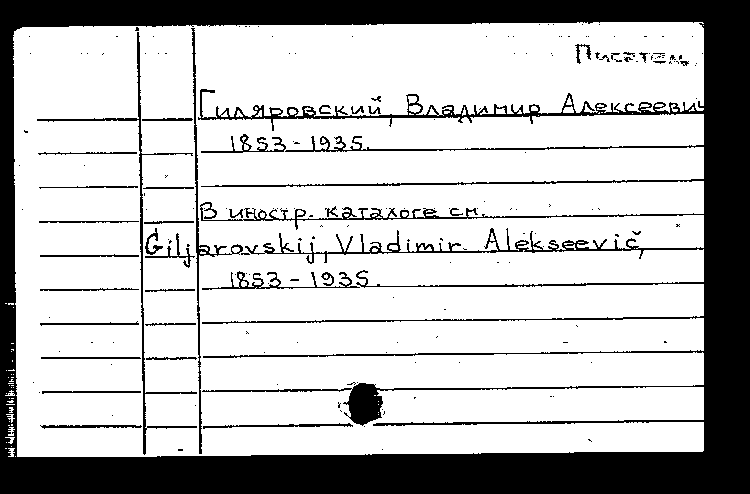 Писатель
Гиляровский, Владимир Алексеевич
1853-1935.
В иностр. каталоге см.
Giljarovskij, Vladimir Alekseevič,
1853-1935.